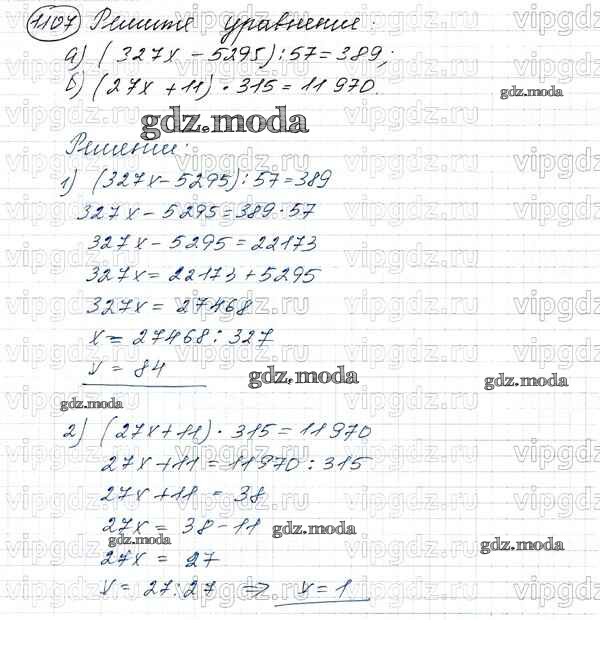 1107 Решите уравнение:
а) (327x - 5295) : 57 = 389;
б) (27x + 11) · 315 = 11 970.
gdz.moda
gdz.moda
Решение:
1) (327x - 5295) : 57 = 389
327x - 5295 = 389 · 57
327x - 5295 = 22173
327x = 22173 + 5295
327x = 27468
x = 27468 : 327
x = 84
gdz.moda
gdz.moda
gdz.moda
2) (27x + 11) · 315 = 11 970
27x + 11 = 11970 : 315
27x + 11 = 38
27x = 38 - 11
gdz.moda
gdz.moda
gdz.moda
27x = 27
x = 27 : 27 => x = 1
vipgdz.ru